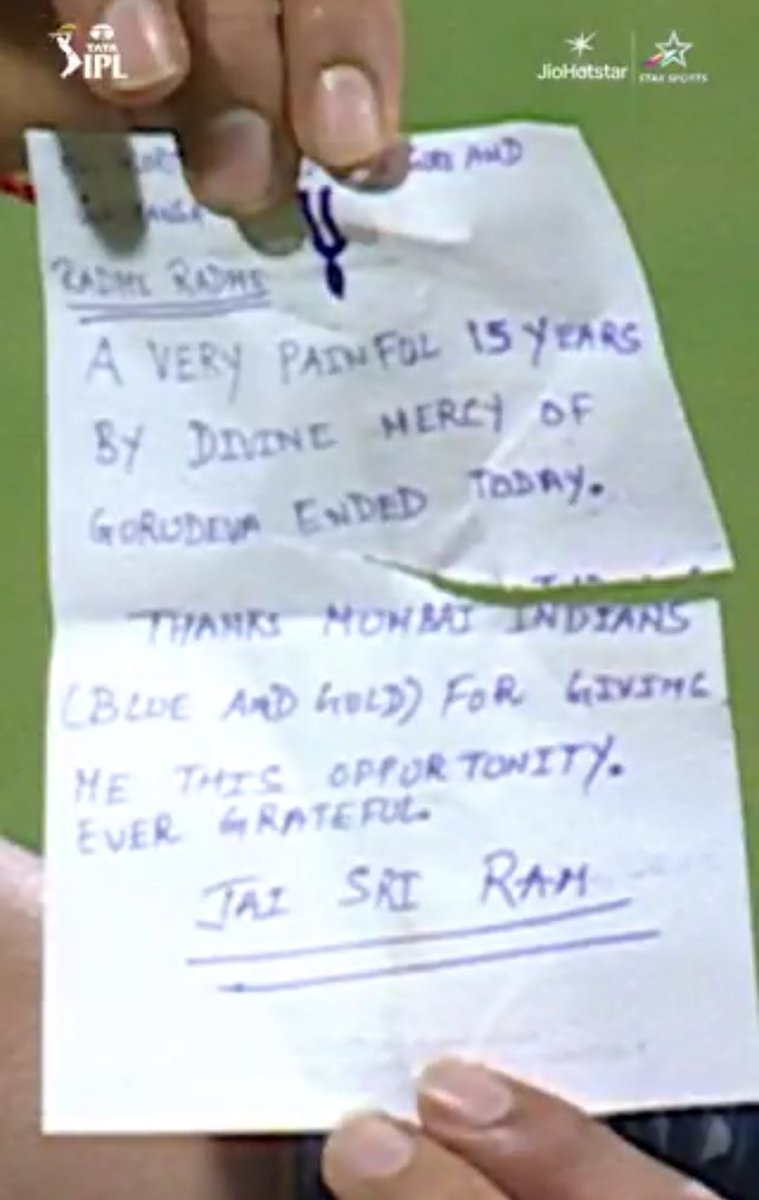 TATA
IPL
JioHotstar
STAR SPORTS
AND
RADHE RADHE
A VERY PAINFUL 15 YEARS
BY DIVINE MERCY OF
GURUDEVA ENDED TODAY.
THANKS MUMBAI INDIANS
(BLUE AND GOLD) FOR GIVING
ME THIS OPPURTUNITY.
EVER GRATEFUL.
JAI SRI RAM